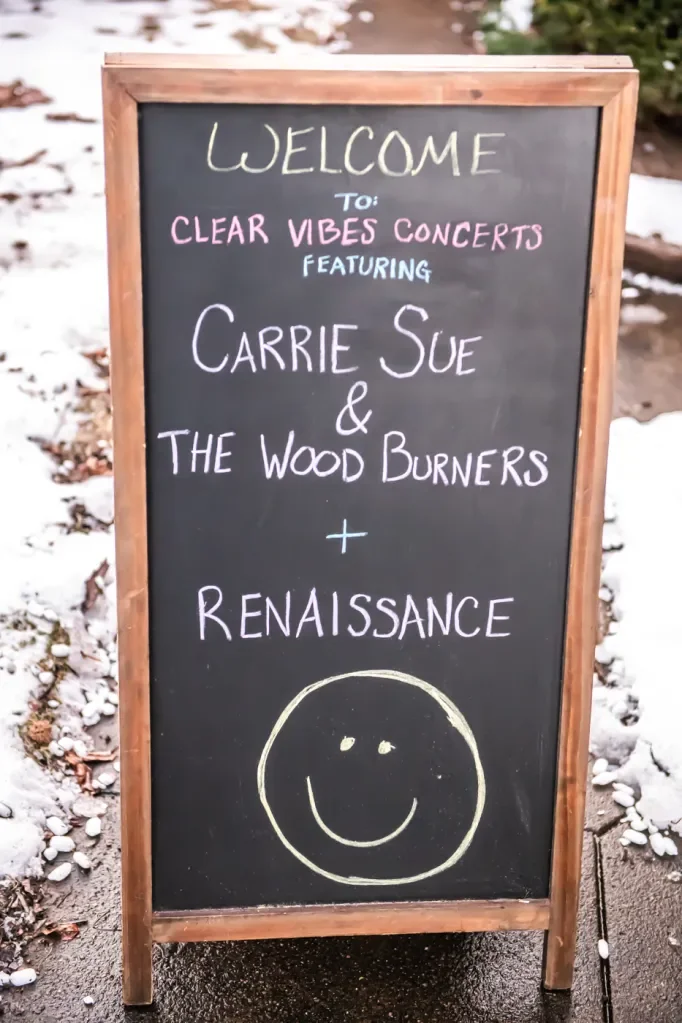 WELCOME
TO:
CLEAR VIBES CONCERTS
FEATURING
CARRIE SUE
&
THE WOOD BURNERS
+
RENAISSANCE